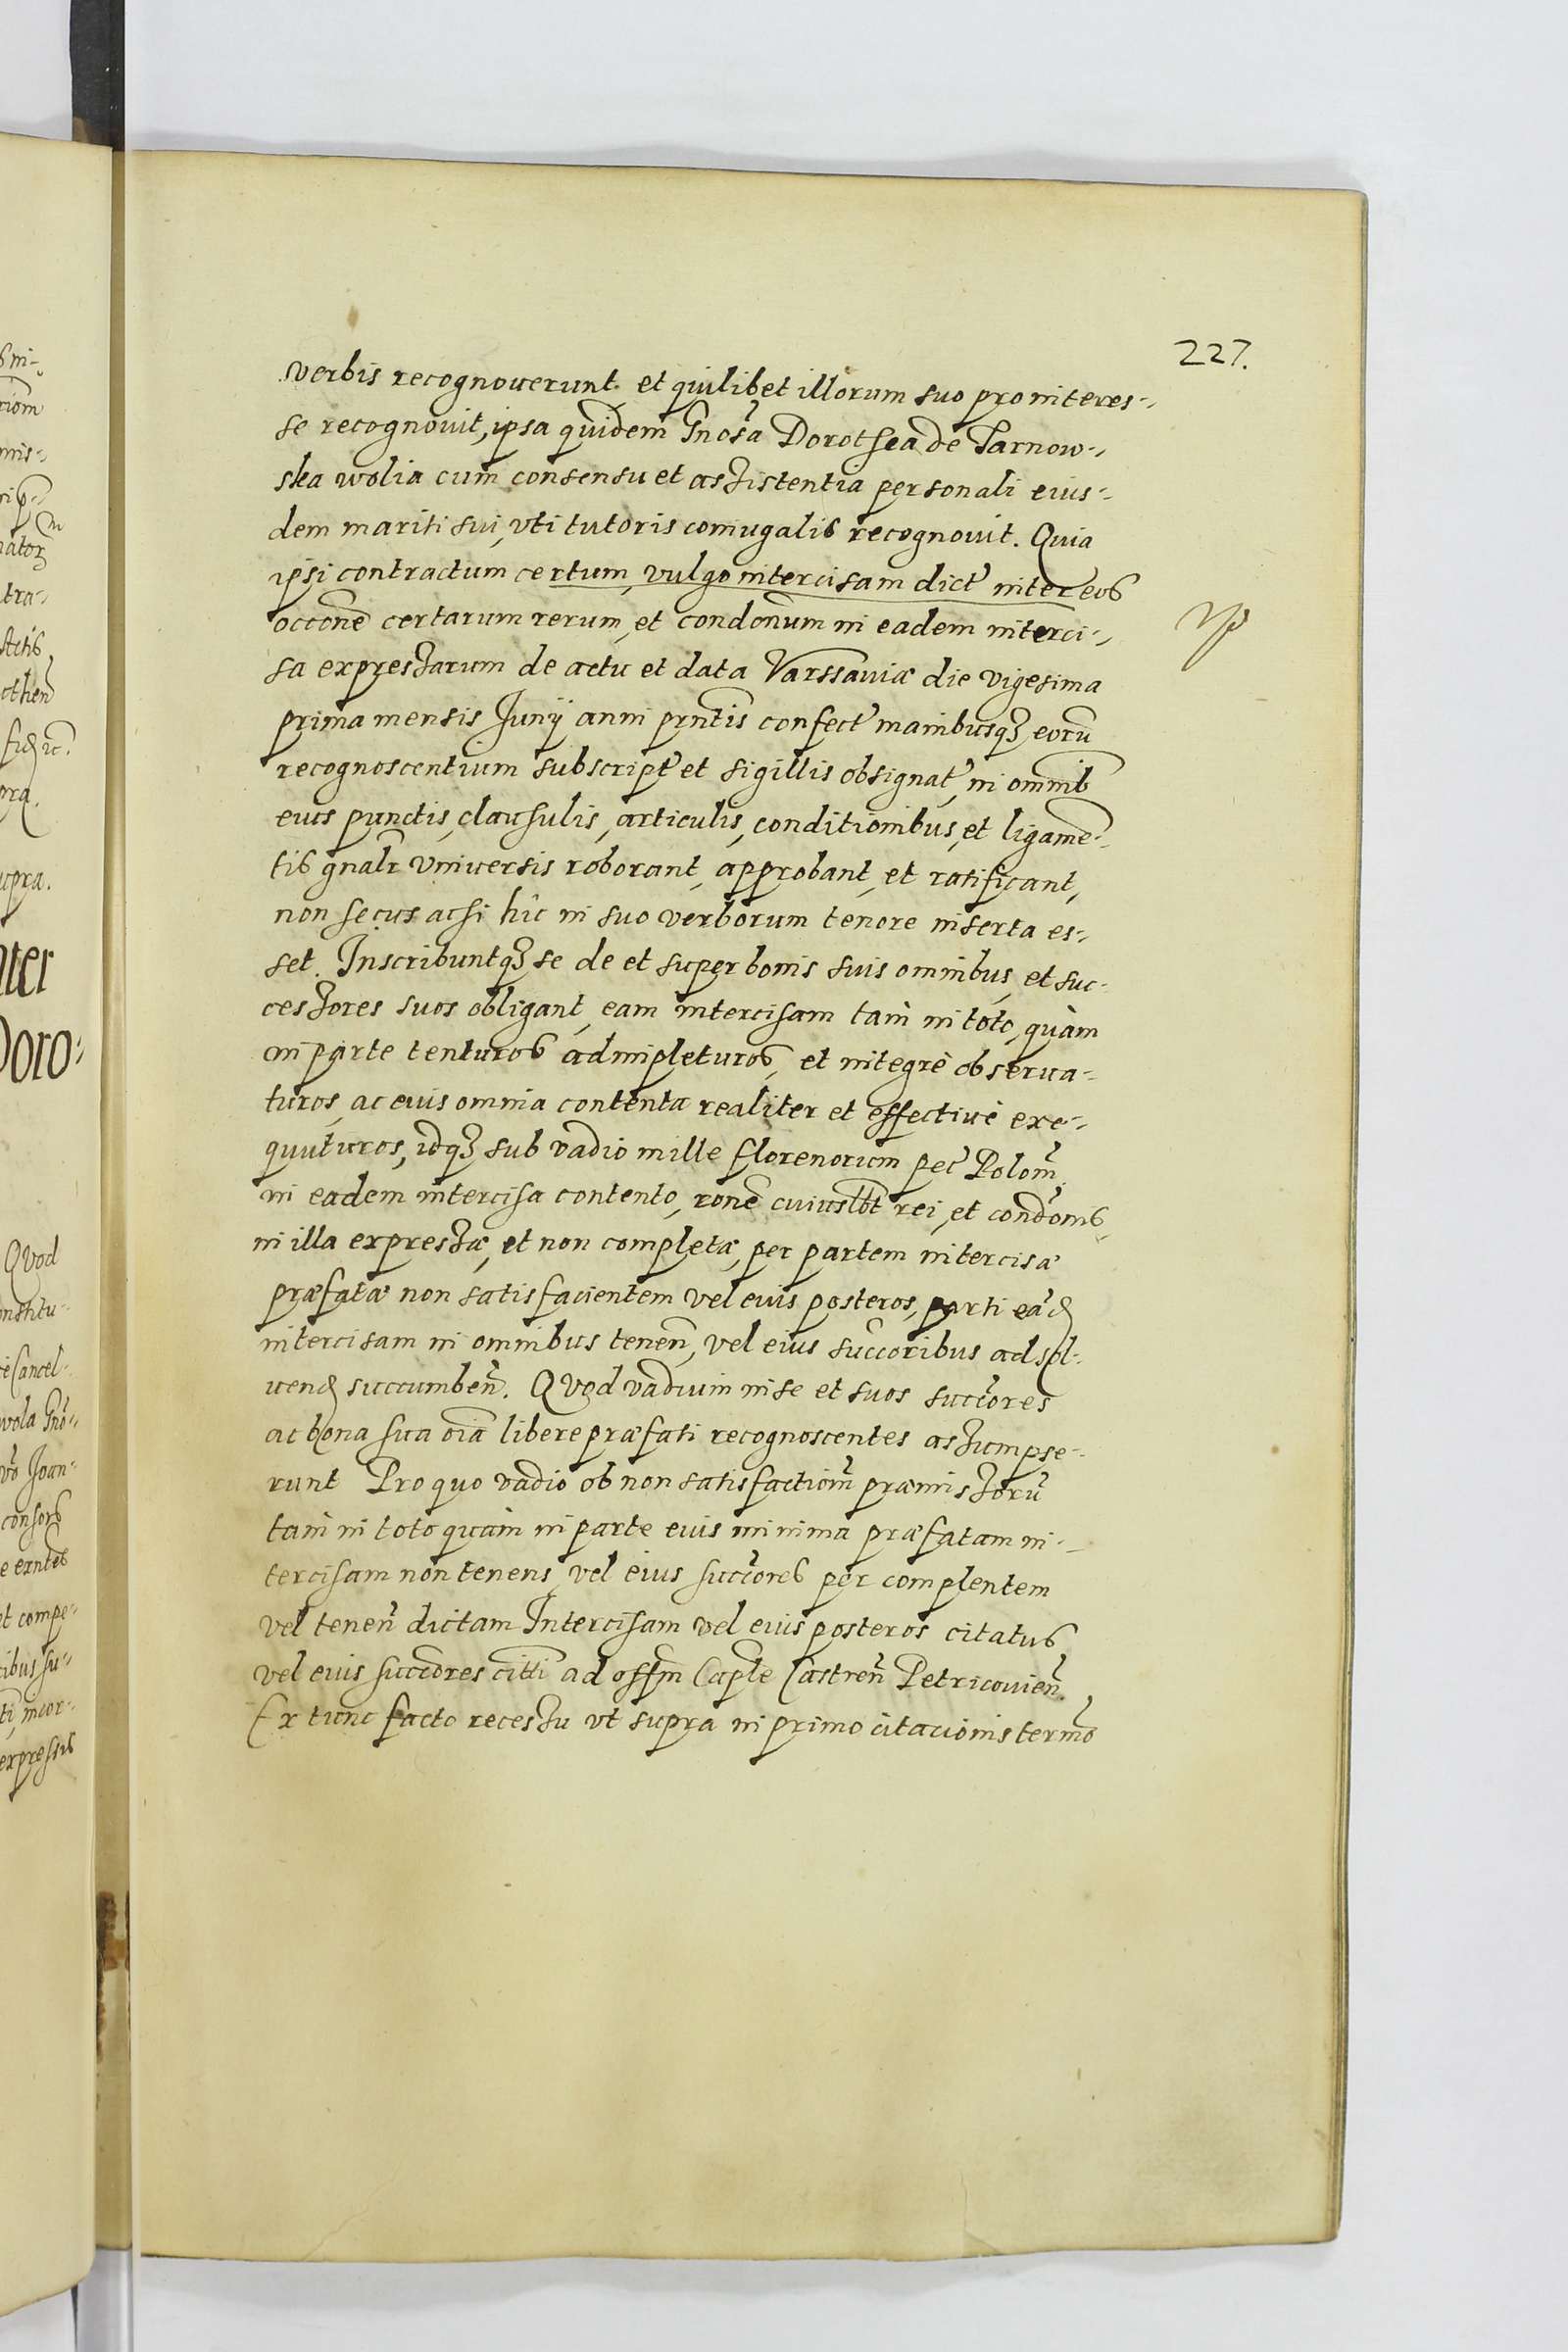 227.
verbis recognouerunt et quilibet illorum suo pro interes-
se recognouit, ipsa quidem Gnosa Dorothea de Tarnow-
ska wolia cum consensu et assistentia personali eius-
dem mariti sui, vti tutoris coniugalis recognouit. Quia
ipsi contractum certum, vulgo intercisam dict inter eos
occone certarum rerum, et condonum in eadem interci-
sa expressarum de actu et data Varssauiæ die vigesima
prima mensis Junij anni prntis confect manibusq eoru
recognoscentium subscript et sigillis obsignat, in omnib
eius punctis, clausulis, articulis, conditionibus, et ligame-
tis gnalr vniuersis roborant, approbant, et ratificant,
non secus acsi hic in suo verborum tenore inserta es-
set. Inscribuntq se de et super bonis suis omnibus, et suc-
cessores suos obligant, eam intercisam tam in toto, quàm
in parte tenturos adimpleturos, et integrè obserua-
turos, ac eius omnia contenta realiter et effectiuè exe-
quuturos, idq sub vadio mille florenorum pec Polon
in eadem intercisa contento, rone cuiuslbt rei, et condonis
in illa expressæ, et non completæ, per partem intercisæ
præfatæ non satisfacientem vel eius posteros, parti ead
intercisam in omnibus tenen, vel eius succoribus ad sol-
uend succumben. Quod vadium in se et suos succores
ac bona sua oia libere præfati recognoscentes assumpse-
runt Pro quo vadio ob non satisfactiom præmissoru
tam in toto quàm in parte eius minima præfatam in-
tercisam non tenens, vel eius succores per complentem
vel tenen dictam Intercisam vel eius posteros citatus
vel eius succores citti ad offm Caple Castren Petricouien.
Ex tunc facto recessu vt supra in primo citacionis termo